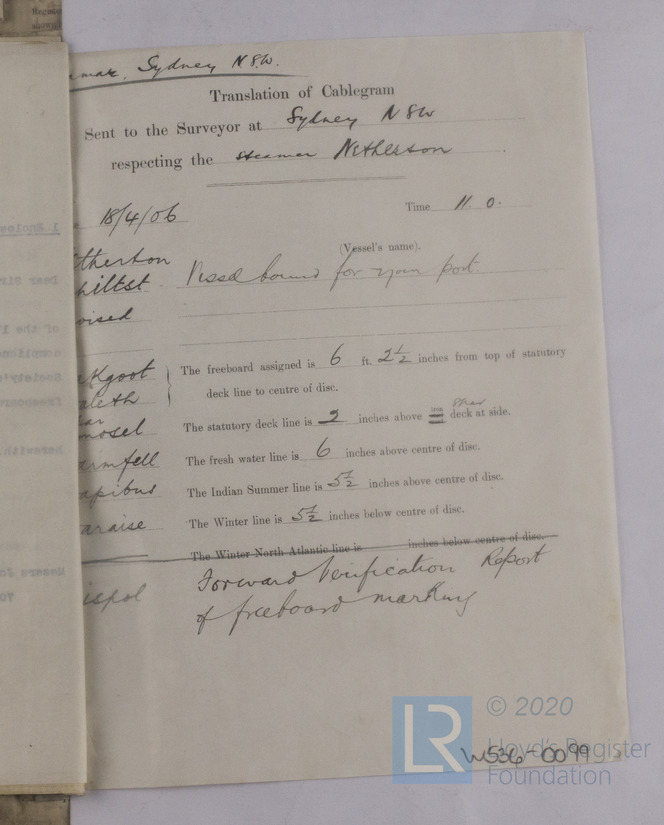 amar, Sydney N.S.W.
Translation of Cablegram
Sent to the Surveyor at Sydney NSW
respecting the steamer Netherson
18/4/06 Time 11.0.
(Vessel's name).
therton Vessel bound for your port.
hiltst
oised
The freeboard assigned is 6 ft. 2½ inches from top of statutory
deck line to centre of disc.
aleth
The statutory deck line is 2 inches above deck at side.
mosel
The fresh water line is 6 inches above centre of disc.
apibus The Indian Summer line is 5½ inches above centre of disc.
araise The Winter line is 5½ inches below centre of disc.
The Winter North Atlantic line is inches below centre of disc.
ispol Forward Verification Report
of freeboard marking
LR © 2020
Lloyd's Register
Foundation
W536-0099